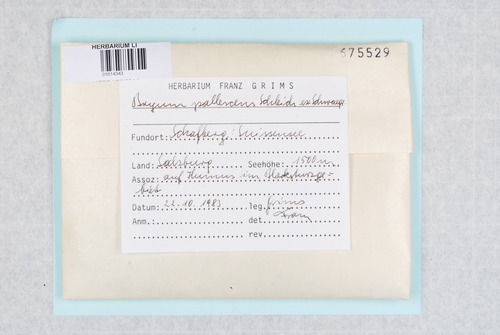 HERBARIUM LI
675529
HERBARIUM FRANZ GRIMS
Bryum pallescens Schleich. ex Schwaegr.
Fundort: Schafberg: Suissensee
Land: Salzburg Seehöhe: 1500 m
Assoz: auf Humus im
Datum: 22.10.1983 leg. Grims
Anm.: det.
rev.